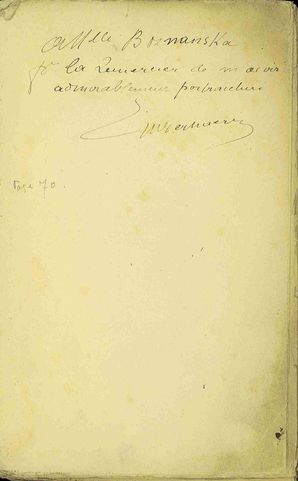 à Mlle Bosnanska
pr la remercier de m'avoir
admirablement portraicturé
Page 70.